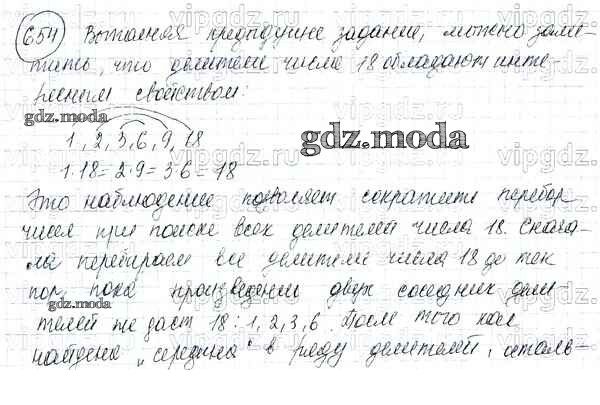 654 Выполняя предыдущие задание, можно заме-
тить, что делители числа 18 обладают инте-
ресным свойством:
gdz.moda
1, 2, 3, 6, 9, 18
gdz.moda
1·18=2·9=3·6=18
Это наблюдение позволяет сократить перебор
чисел при поиске всех делителей числа 18. Снача-
ла перебираем все делители числа 18 до тех
пор, пока произведение двух соседних дели-
gdz.moda
телей не даст 18: 1, 2, 3, 6. После того как
найдена „середина" в ряду делителей, осталь-